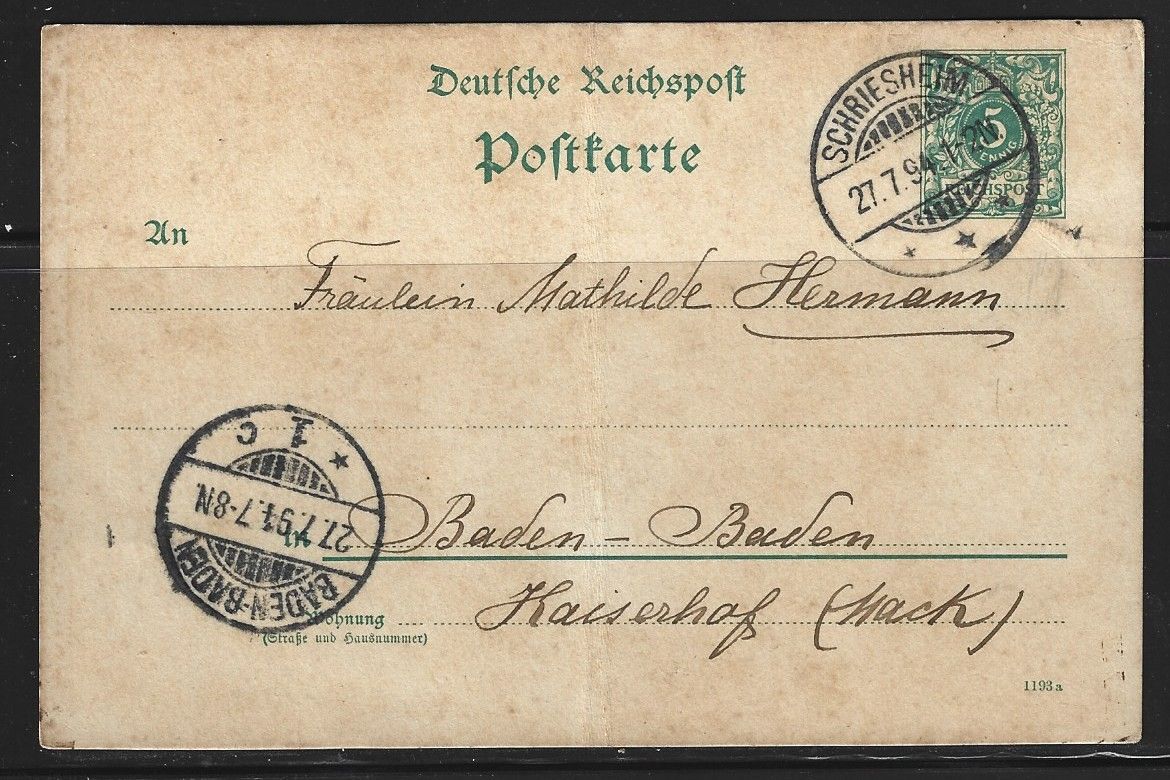 Deutsche Reichspost
Postkarte
SCHRIESHEIM
27.7.94.1-2N.
5
PFENNIG
REICHSPOST
An
Fräulein Mathilde Hermann
in Baden-Baden
Kaiserhof (Mack)
Wohnung
(Straße und Hausnummer)
BADEN-BADEN
27.7.94.7-8N.
1 c
1193a